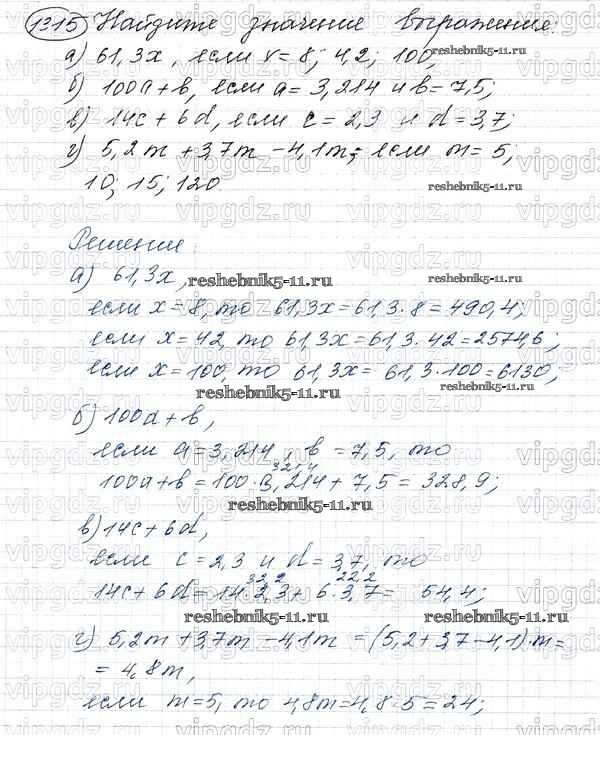 1315 Найдите значение выражения:
а) 61,3x, если x = 8; 42; 100;
б) 100a + b, если a = 3,214 и b = 7,5;
в) 14c + 6d, если c = 2,3 и d = 3,7;
г) 5,2m + 3,7m - 4,1m; если m = 5;
reshebnik5-11.ru
10; 15; 120
Решение:
а) 61,3x,
reshebnik5-11.ru
reshebnik5-11.ru
если x = 8, то 61,3x = 61,3·8 = 490,4;
если x = 42, то 61,3x = 61,3·42 = 2574,6;
если x = 100, то 61,3x = 61,3·100 = 6130;
reshebnik5-11.ru
reshebnik5-11.ru
б) 100a + b,
если a = 3,214, b = 7,5, то
321,4
100a + b = 100·3,214 + 7,5 = 328,9;
reshebnik5-11.ru
в) 14c + 6d,
если c = 2,3 и d = 3,7, то
32,2 22,2
14c + 6d = 14·2,3 + 6·3,7 = 54,4;
reshebnik5-11.ru
reshebnik5-11.ru
г) 5,2m + 3,7m - 4,1m = (5,2 + 3,7 - 4,1)·m =
= 4,8m,
если m = 5, то 4,8m = 4,8·5 = 24;
vipgdz.ru